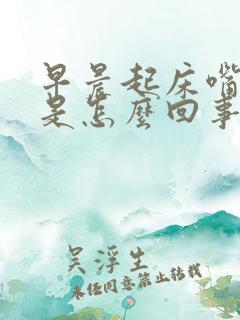 早晨起床嘴
是怎麼回事
吴浮生
未经同意禁止转载